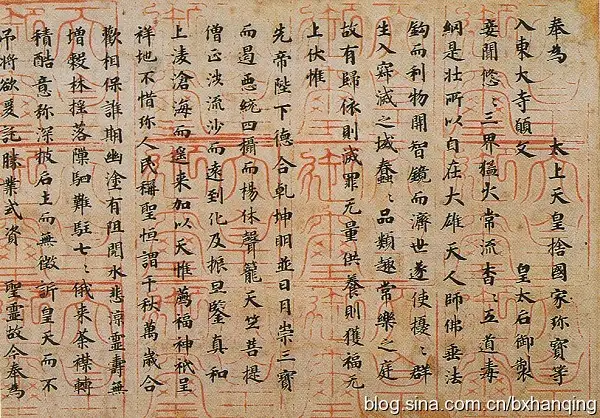 奉為　太上天皇捨國家珍寶等
入東大寺願文　皇太后御製
妾聞悠々三界猛火常流杳々五道毒
網是壯所以自在大雄天人師佛垂法
鈎而利物開智鏡而濟世遂使擾々群
生入寂滅之域蠢々品類趣常樂之庭
故有歸依則滅罪无量供養則獲福无
上伏惟
先帝陛下德合乾坤明並日月崇三寶
而遏惡統四攝而揚休聲籠天竺菩提
僧正涉流沙而遠到化及振旦鑒真和
上凌滄海而遙來加以天惟薦福神祇呈
祥地不惜珍人民稱聖恒謂千秋萬歲合
歡相保誰期幽塗有阻閱水悲涼靈壽無
增穀林搖落隟駟難駐七々俄來荼襟轉
積酷意弥深披后土而無徵訴皇天而不
弔將欲爰託勝業式資　聖靈故今奉為
blog.sina.com.cn/bxhanqing